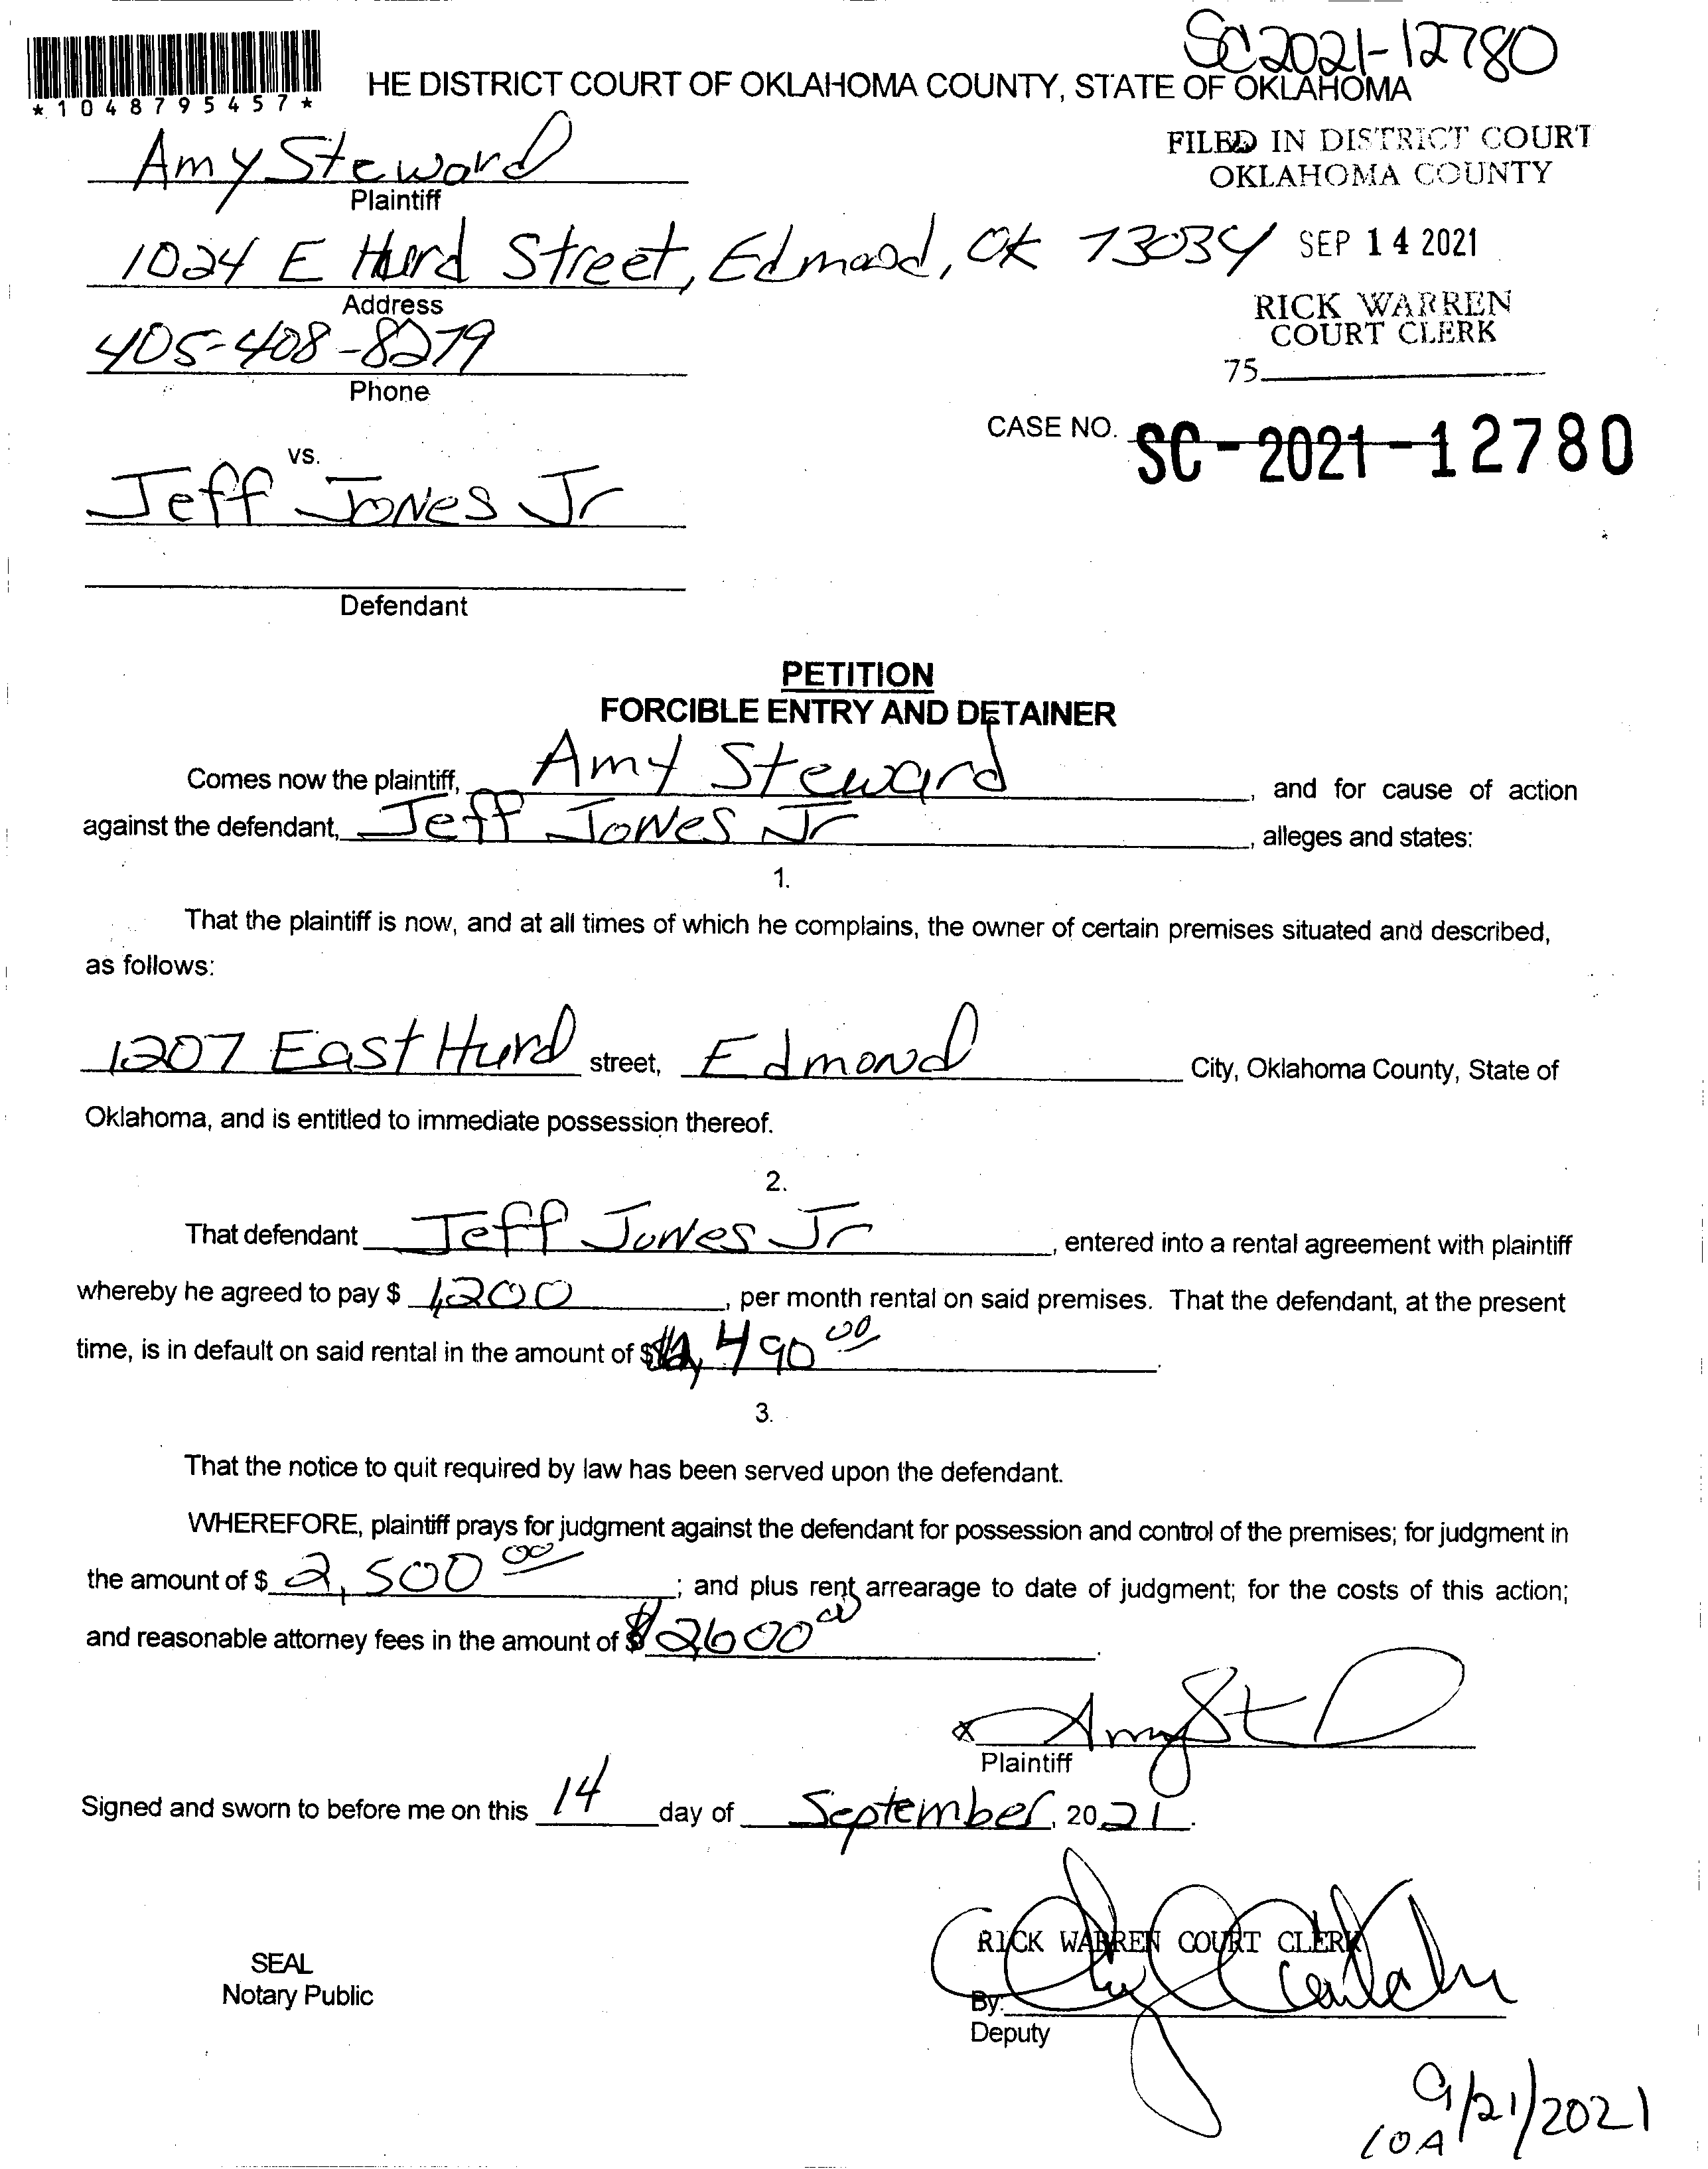 SC2021-12780
*1048795457*
HE DISTRICT COURT OF OKLAHOMA COUNTY, STATE OF OKLAHOMA
FILED IN DISTRICT COURT
OKLAHOMA COUNTY
Amy Steward
Plaintiff
1024 E Hurd Street, Edmond, OK 73034
SEP 14 2021
Address
RICK WARREN
COURT CLERK
405-408-8279
75
Phone
CASE NO. SC-2021-12780
vs.
Jeff Jones Jr
Defendant
PETITION
FORCIBLE ENTRY AND DETAINER
Comes now the plaintiff, Amy Steward, and for cause of action
against the defendant, Jeff Jones Jr, alleges and states:
1.
That the plaintiff is now, and at all times of which he complains, the owner of certain premises situated and described,
as follows:
1207 East Hurd street, Edmond City, Oklahoma County, State of
Oklahoma, and is entitled to immediate possession thereof.
2.
That defendant Jeff Jones Jr, entered into a rental agreement with plaintiff
whereby he agreed to pay $ 1,200, per month rental on said premises. That the defendant, at the present
time, is in default on said rental in the amount of
3.
That the notice to quit required by law has been served upon the defendant.
WHEREFORE, plaintiff prays for judgment against the defendant for possession and control of the premises; for judgment in
the amount of $ 2,500 00; and plus rent arrearage to date of judgment; for the costs of this action;
and reasonable attorney fees in the amount of $ 2600 00.
x Amy
Plaintiff
Signed and sworn to before me on this 14 day of September, 2021.
RICK WARREN COURT CLERK
SEAL
Notary Public
By:
Deputy
9/21/2021
10A